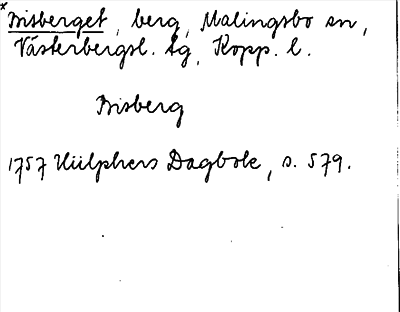 *Bisberget, berg, Malingsbo sn,
Västerbergsl. tg, Kopp. l.
Bisberg
1757 Hülphers Dagbok, s. 579.